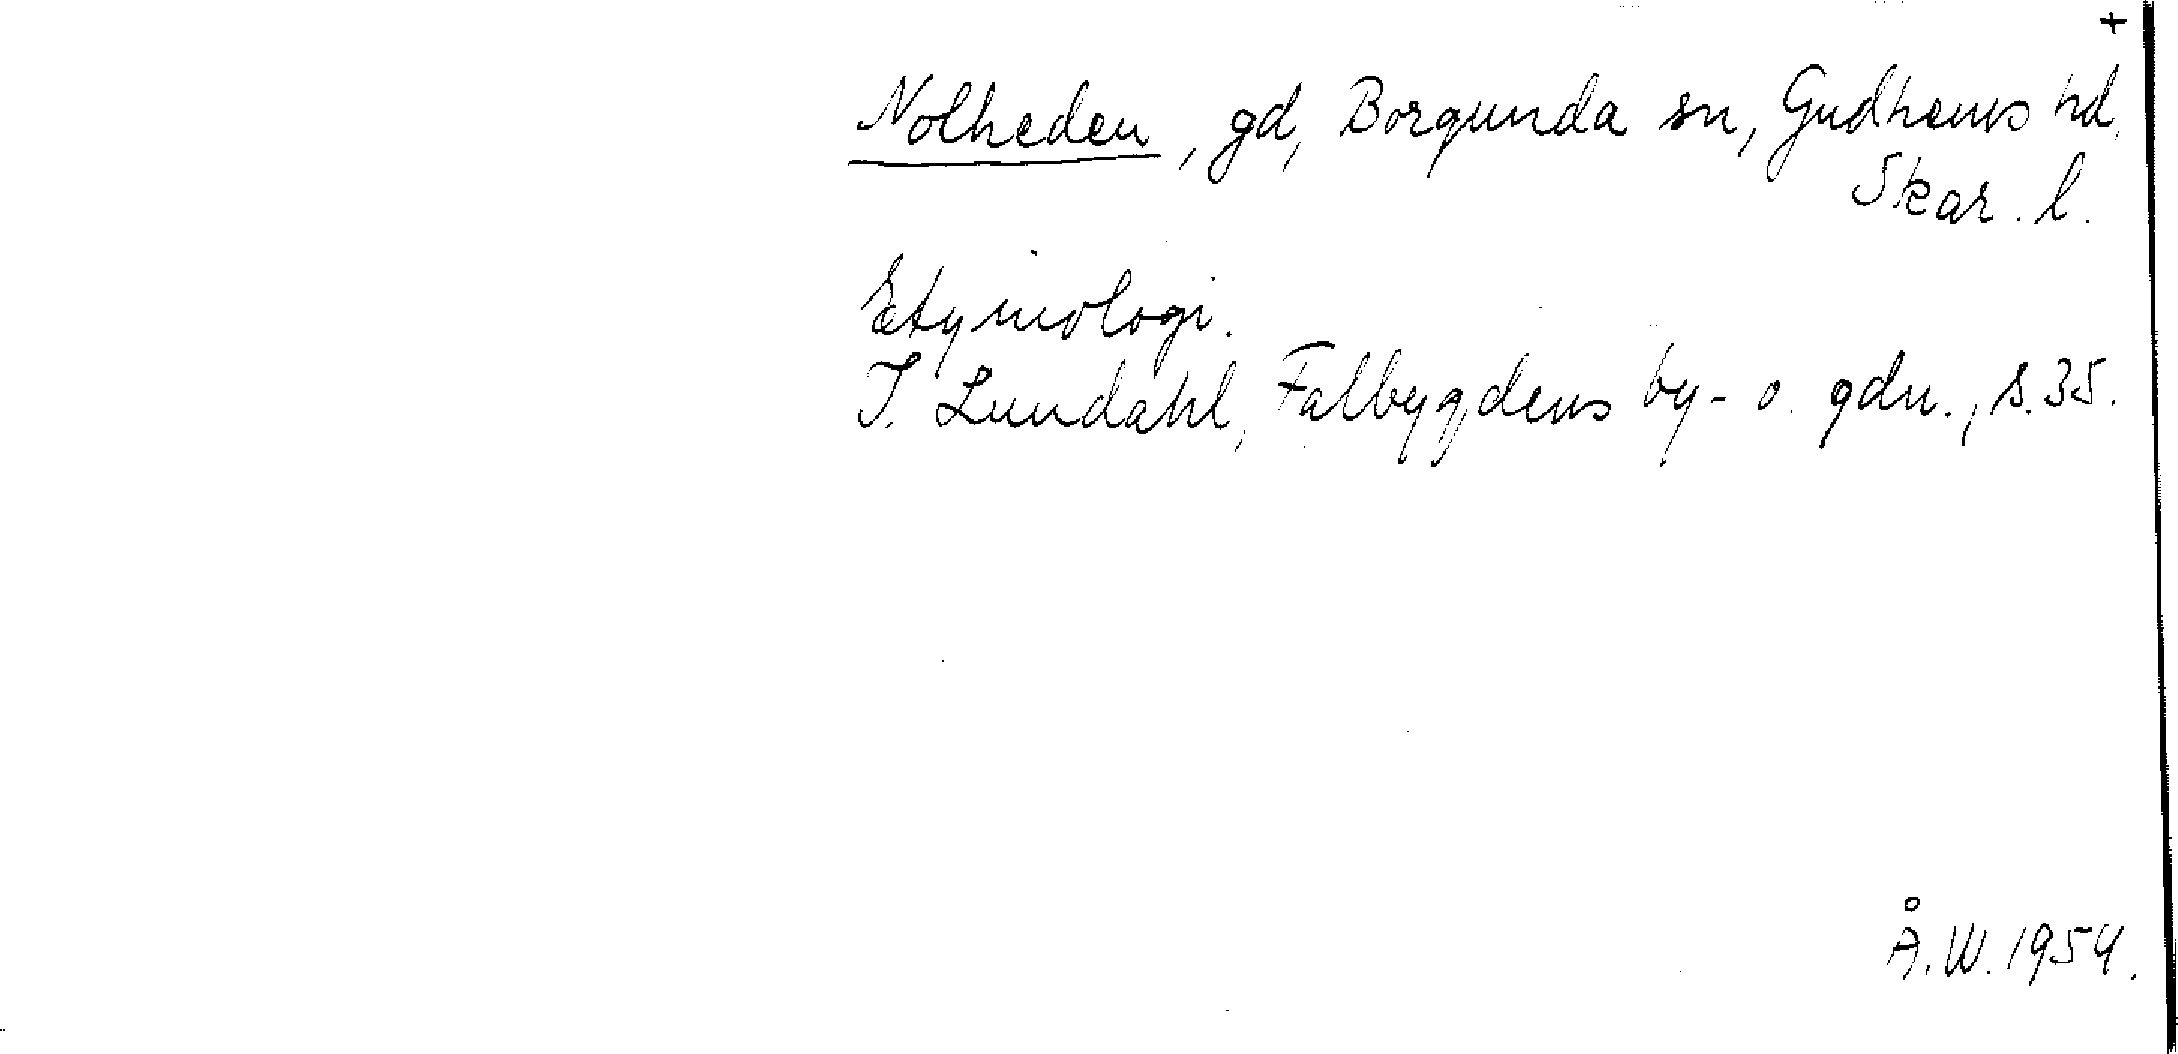 +
Nolheden, gd, Borgunda sn, Gudhems hd,
Skar. l.
Etymologi.
I. Lundahl, Falbygdens by- o. gdn., s. 35.
Å. W. 1954.